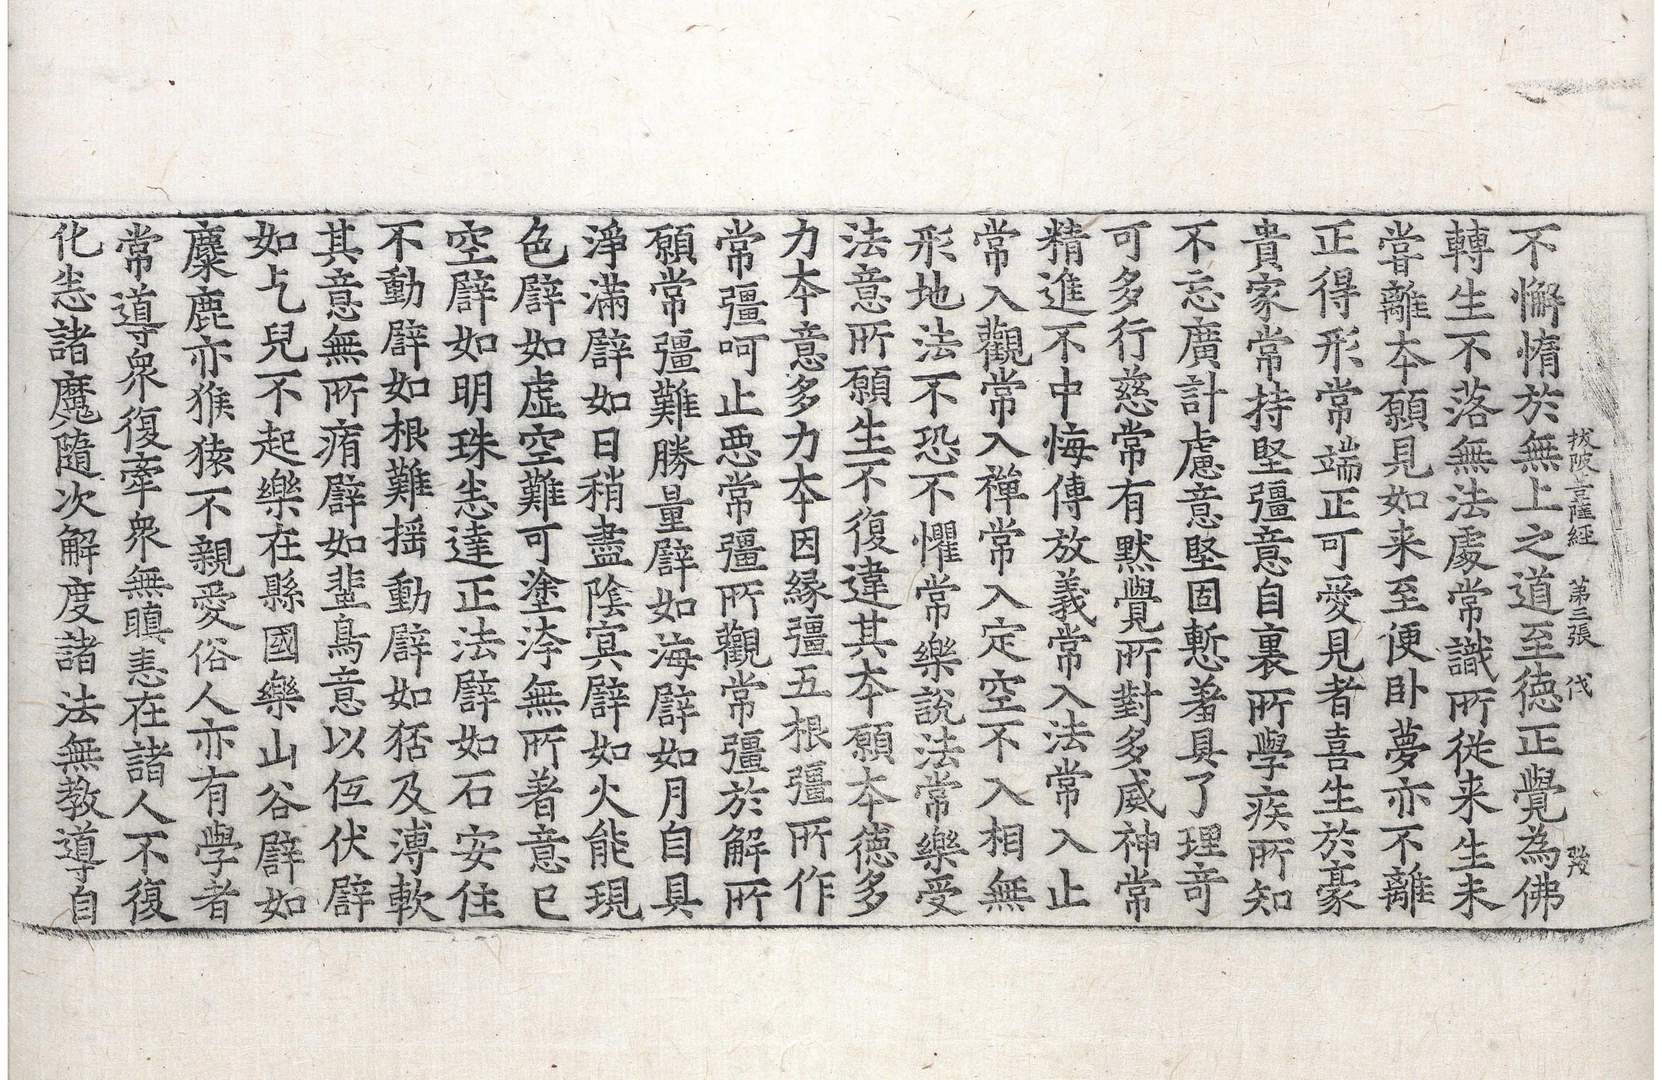 拔陂菩薩經　第三張　伐
不懈惰於無上之道至德正覺為佛
轉生不落無法處常識所従来生未
甞離夲願見如来至便卧夢亦不離
正得形常端正可愛見者喜生於豪
貴家常持堅彊意自裏所學疾所知
不忘廣計慮意堅固慙羞具了理竒
可多行慈常有默覺所對多威神常
精進不中悔傳放義常入法常入止
常入觀常入禪常入定空不入相無
形地法不恐不懼常樂說法常樂受
法意所願生不復違其夲願夲德多
力夲意多力夲因緣彊五根彊所作
常彊呵止惡常彊所觀常彊於解所
願常彊難勝量譬如海譬如月自具
淨滿譬如日稍盡陰㝠譬如火能現
色譬如虛空難可塗洿無所著意已
空譬如明珠悉達正法譬如石安住
不動譬如根難揺動譬如狧及溥軟
其意無所痏譬如蜚鳥意以伍伏譬
如乞兒不起樂在縣國樂山谷譬如
麋鹿亦猴猨不親愛俗人亦有學者
常導衆復牽衆無瞋恚在諸人不復
化恙諸魔隨次解度諸法無教導自